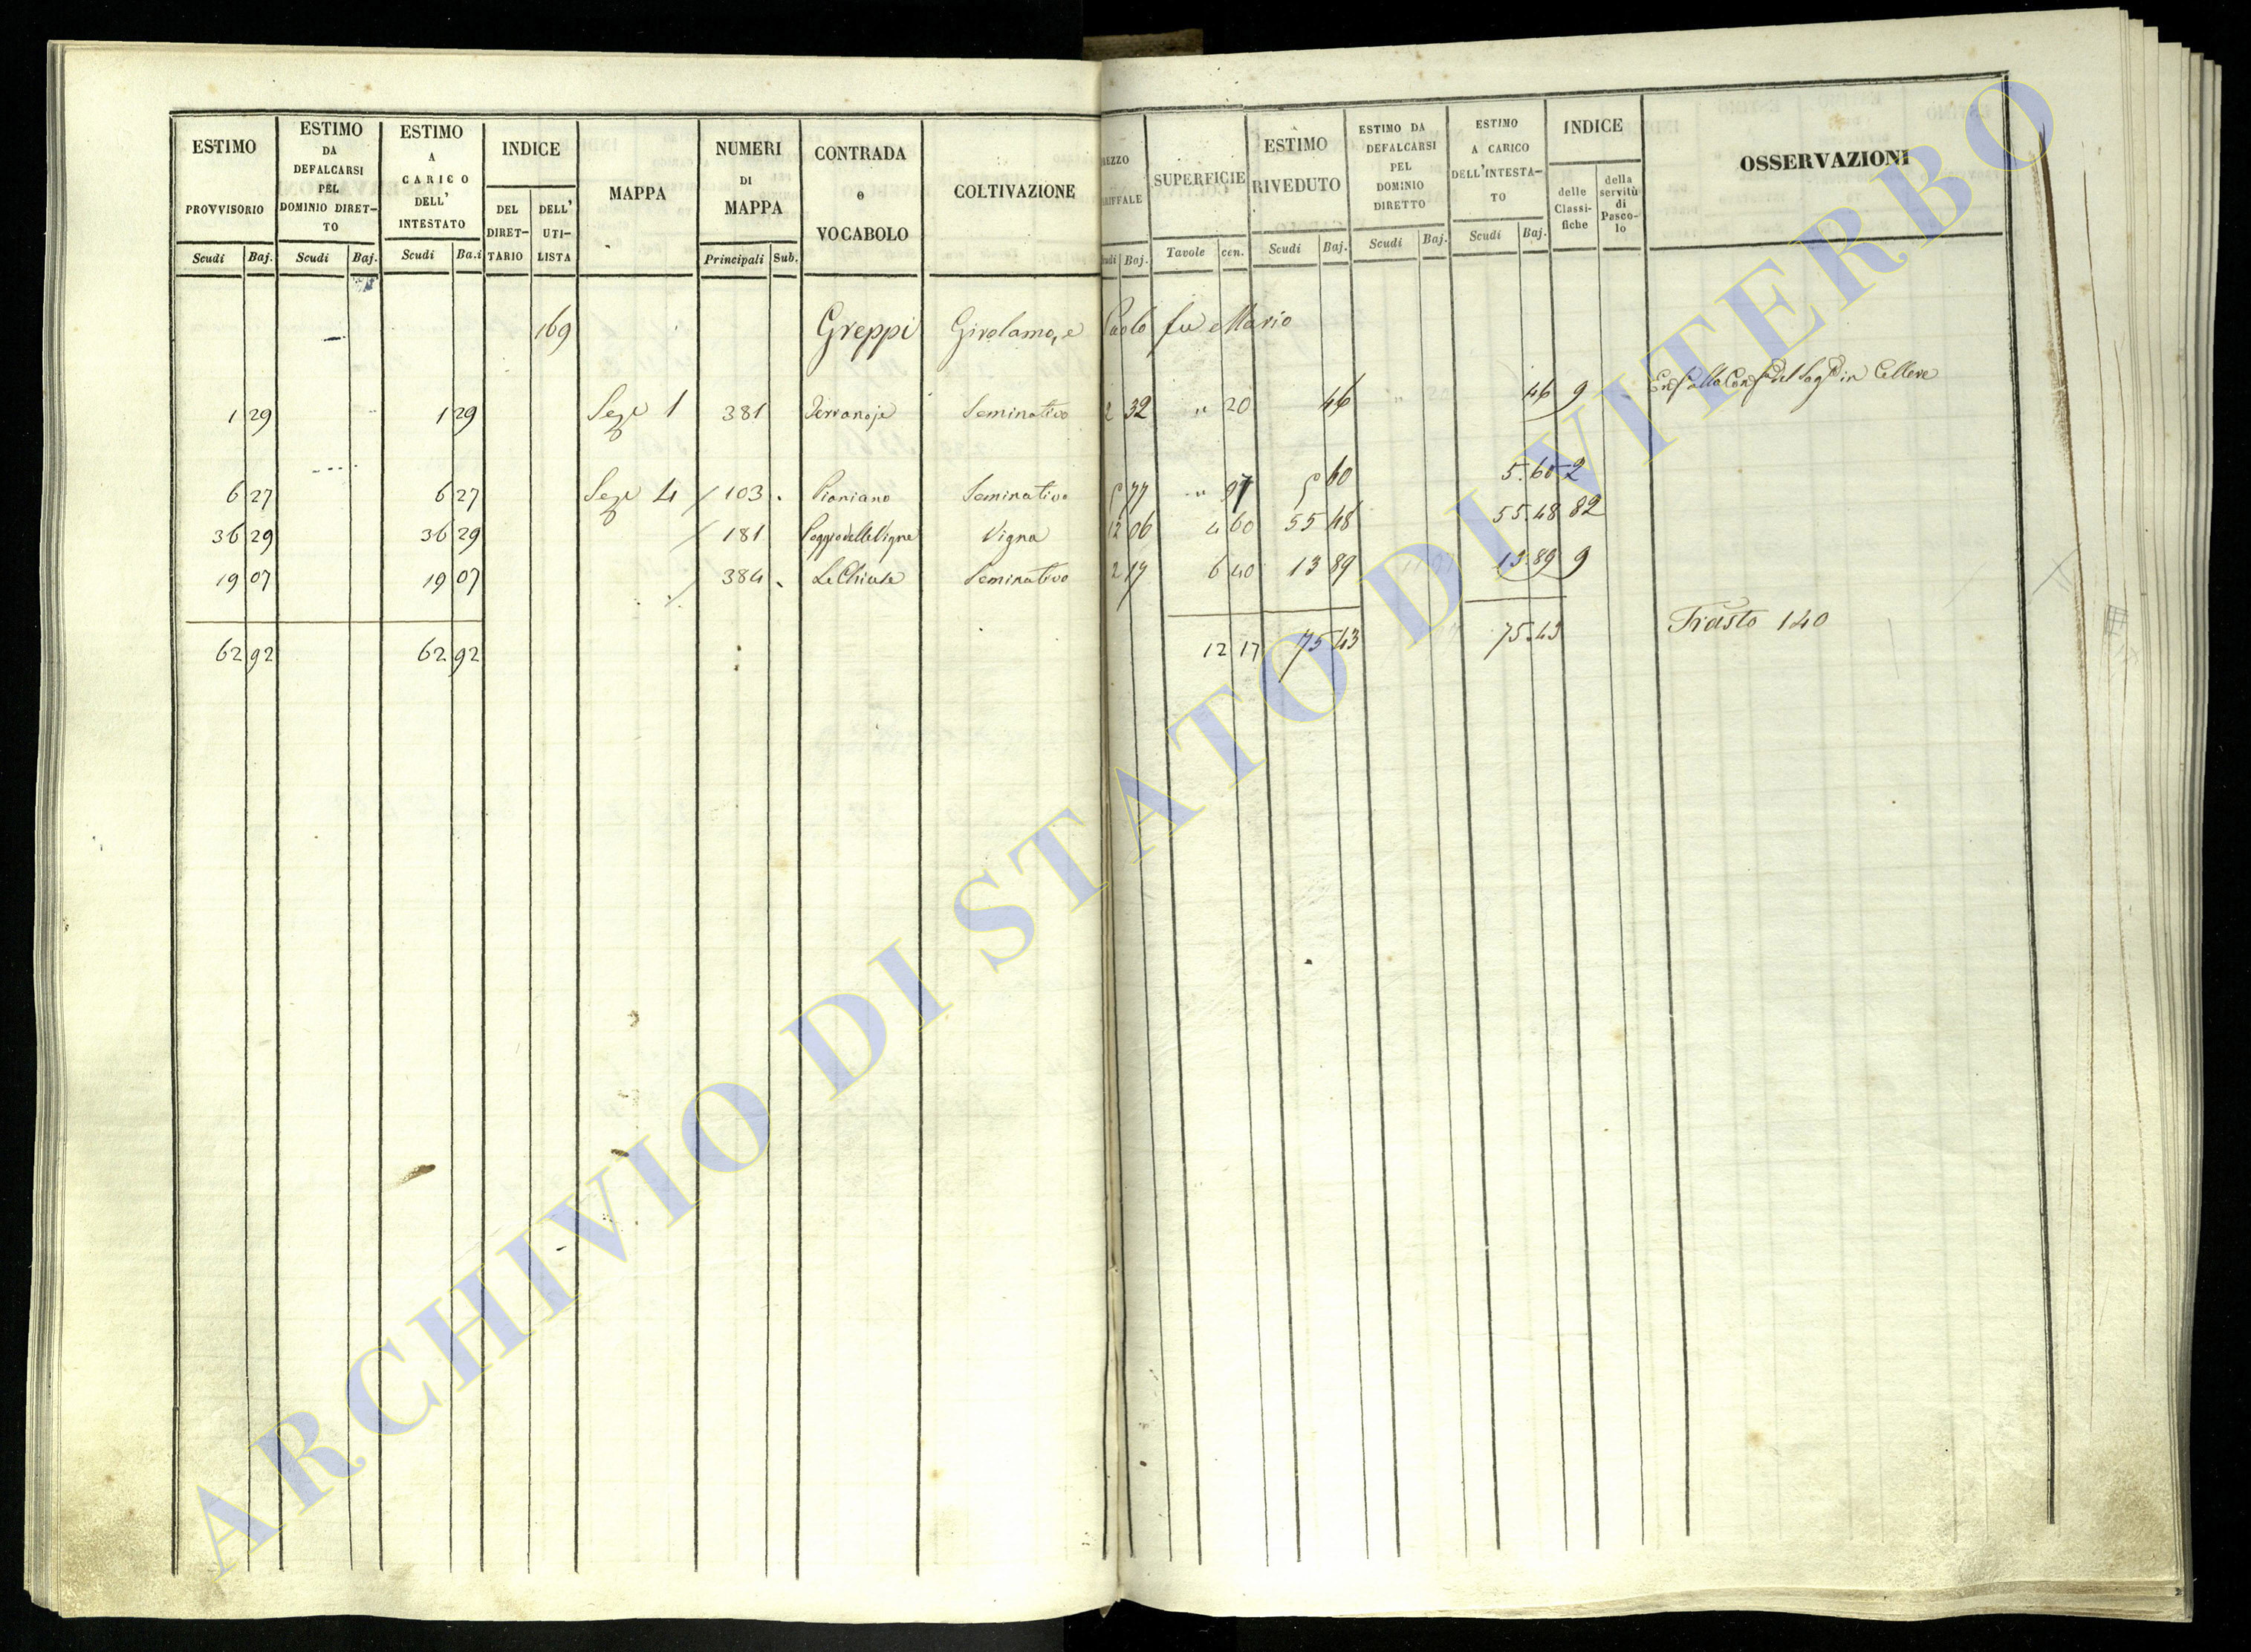 ESTIMO PROVVISORIO Scudi Baj.
ESTIMO DA DEFALCARSI PEL DOMINIO DIRET-TO Scudi Baj.
ESTIMO A CARICO DELL' INTESTATO Scudi Ba.i
INDICE DEL DIRET-TARIO DELL' UTI-LISTA
MAPPA
NUMERI DI MAPPA Principali Sub.
CONTRADA o VOCABOLO
COLTIVAZIONE
SUPERFICIE Tavole cen.
ESTIMO RIVEDUTO Scudi Baj.
ESTIMO DA DEFALCARSI PEL DOMINIO DIRETTO Scudi Baj.
ESTIMO A CARICO DELL'INTESTA-TO Scudi Baj.
INDICE delle Classi-fiche della servitù di Pasco-lo
OSSERVAZIONI
169 Greppi Girolamo, e Paolo fu Mario
1 29 1 29 Sez 1 381 Seminativo 2 32 " 20 46 46 9 in Cellere
6 27 6 27 Sez 4 103 Pianiano Seminativo 5 77 " 97 5 60 5.60 2
36 29 36 29 181 Poggio delle Vigne Vigna 12 06 4 60 55 48 55.48 82
19 07 19 07 384 Le Chiuse Seminativo 2 17 6 40 13 89 13.89 9
62 92 62 92 12 17 75 43 75.43 Trasto 140
ARCHIVIO DI STATO DI VITERBO